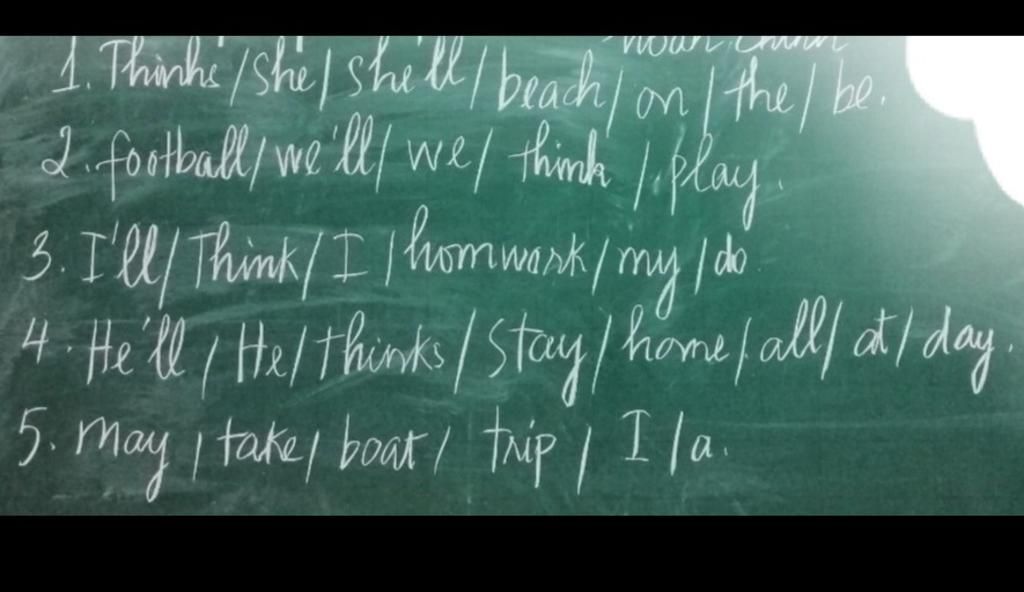 1. Thinks / She / she'll / beach / on / the / be.
2. football / we'll / we / think / play.
3. I'll / Think / I / homwork / my / do
4. He'll / He / thinks / stay / home / all / at / day.
5. may / take / boat / trip / I / a.